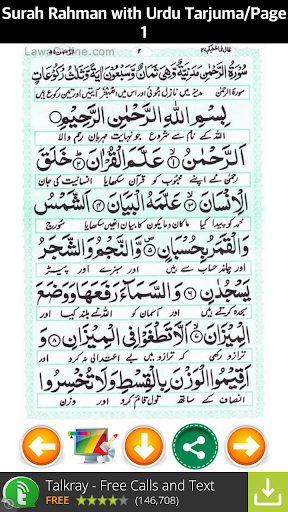 Surah Rahman with Urdu Tarjuma/Page 1
LawaOnline.com
٢
سُوْرَةُ الرَّحْمٰنِ مَدَنِيَّةٌ وَّهِيَ ثَمَانٌ وَّسَبْعُوْنَ اٰيَةً وَّثَلٰثُ رُكُوْعَاتٍ
سورۃ الرحمٰن مدینہ میں نازل ہوئی اور اس میں اٹھتر آیتیں اور تین رکوع ہیں
بِسْمِ اللّٰهِ الرَّحْمٰنِ الرَّحِيْمِ
اللہ کے نام سے شروع جو نہایت مہربان رحم والا
اَلرَّحْمٰنُ ۙ۱ عَلَّمَ الْقُرْاٰنَ ؕ۲ خَلَقَ
رحمٰن نے اپنے محبوب کو قرآن سکھایا انسانیت کی جان
الْاِنْسَانَ ۙ۳ عَلَّمَهُ الْبَيَانَ ۴ اَلشَّمْسُ
محمد کو پیدا کیا ما کان وما یکون کا بیان انھیں سکھایا سورج
وَالْقَمَرُ بِحُسْبَانٍ ۪۵ وَّالنَّجْمُ وَالشَّجَرُ
اور چاند حساب سے ہیں اور سبزے اور پیڑ
يَسْجُدٰنِ ۶ وَالسَّمَآءَ رَفَعَهَا وَوَضَعَ
سجدہ کرتے ہیں اور آسمان کو اللہ نے بلند کیا اور
الْمِيْزَانَ ۙ۷ اَلَّا تَطْغَوْا فِى الْمِيْزَانِ ۸ وَ
ترازو رکھی کہ ترازو میں بے اعتدالی نہ کرو اور
اَقِيْمُوا الْوَزْنَ بِالْقِسْطِ وَلَا تُخْسِرُوا
انصاف کے ساتھ تول قائم کرو اور وزن
Talkray - Free Calls and Text
FREE (146,708)